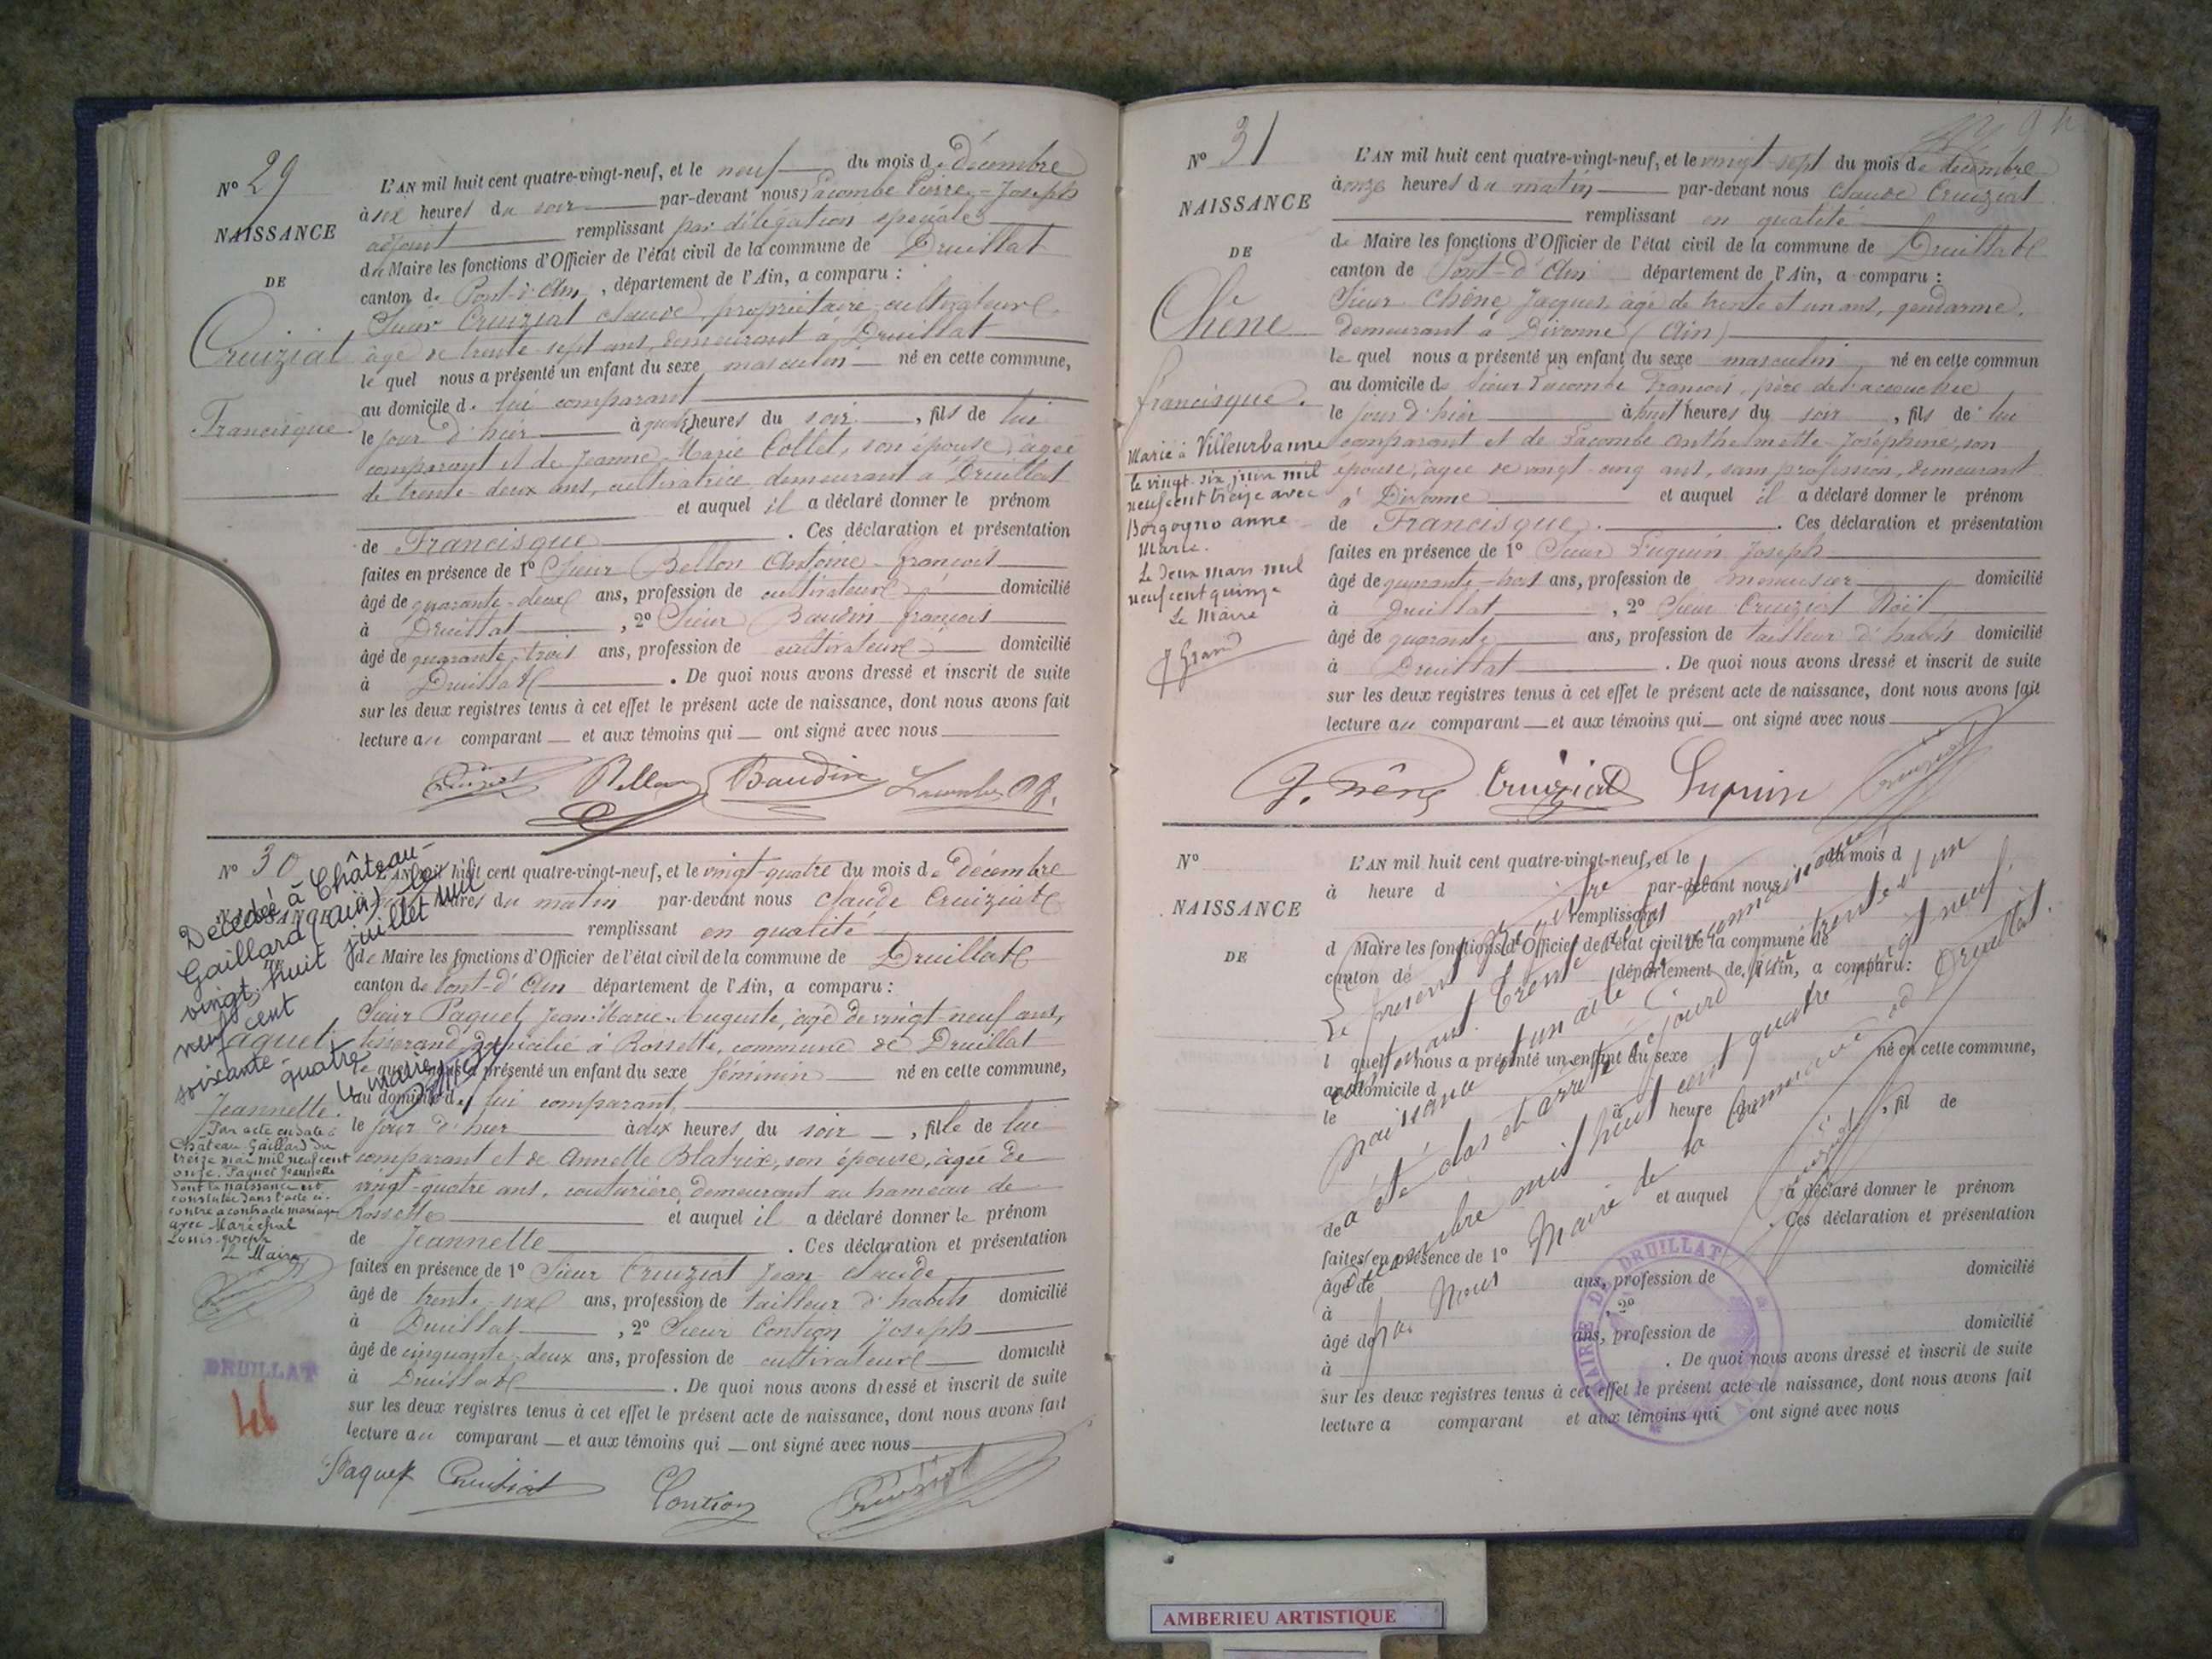 N° 29
NAISSANCE
DE
Cruiziat
Francisque
L'AN mil huit cent quatre-vingt-neuf, et le neuf du mois de décembre
à six heures du soir par-devant nous Lacombe Pierre-Joseph
adjoint remplissant par délégation spéciale
du Maire les fonctions d'Officier de l'état civil de la commune de Druillat
canton de Pont-d'Ain, département de l'Ain, a comparu :
Sieur Cruiziat Claude, propriétaire cultivateur
âgé de trente-sept ans, demeurant à Druillat
lequel nous a présenté un enfant du sexe masculin né en cette commune,
au domicile de lui comparant
le jour d'hier à quatre heures du soir, fils de lui
comparant et de Jeanne-Marie Collet, son épouse, âgée
de trente-deux ans, cultivatrice, demeurant à Druillat
et auquel il a déclaré donner le prénom
de Francisque. Ces déclaration et présentation
faites en présence de 1° Sieur Bellon Antoine-François
âgé de quarante-deux ans, profession de cultivateur domicilié
à Druillat, 2° Sieur Baudin François
âgé de quarante-trois ans, profession de cultivateur domicilié
à Druillat. De quoi nous avons dressé et inscrit de suite
sur les deux registres tenus à cet effet le présent acte de naissance, dont nous avons fait
lecture au comparant et aux témoins qui ont signé avec nous
Cruiziat Bellon Baudin Lacombe
N° 30
NAISSANCE
DE
Paquet
Jeannette.
Décédée à Château-
Gaillard (Ain) le
vingt huit juillet mil
neuf cent
soixante quatre
Le maire
Par acte en date à
Château Gaillard du
treize mai mil neuf cent
onze, Paquet Jeannette
dont la naissance est
constatée dans l'acte ci-
contre a contracté mariage
avec Maréchal
Louis-Joseph
Le Maire
DRUILLAT
46
L'AN mil huit cent quatre-vingt-neuf, et le vingt-quatre du mois de Décembre
heures du matin par-devant nous Claude Cruiziat
remplissant en qualité
de Maire les fonctions d'Officier de l'état civil de la commune de Druillat
canton de Pont-d'Ain département de l'Ain, a comparu :
Sieur Paquet Jean-Marie-Auguste, âgé de vingt-neuf ans,
tisserand, domicilié à Rossette, commune de Druillat
lequel nous a présenté un enfant du sexe féminin né en cette commune,
au domicile de lui comparant,
le jour d'hier à dix heures du soir, fille de lui
comparant et de Annette Blatrix, son épouse, âgée de
vingt-quatre ans, couturière, demeurant au hameau de
Rossette et auquel il a déclaré donner le prénom
de Jeannette. Ces déclaration et présentation
faites en présence de 1° Sieur Cruiziat Jean Claude
âgé de trente-six ans, profession de tailleur d'habits domicilié
à Druillat, 2° Sieur Contion Joseph
âgé de cinquante-deux ans, profession de cultivateur domicilié
à Druillat. De quoi nous avons dressé et inscrit de suite
sur les deux registres tenus à cet effet le présent acte de naissance, dont nous avons fait
lecture au comparant et aux témoins qui ont signé avec nous
Paquet Cruiziat Contion Cruiziat
N° 31
NAISSANCE
DE
Chêne
francisque.
Marié à Villeurbanne
le vingt-six juin mil
neuf cent treize avec
Borgogno anne
Marie.
Le deux mars mil
neuf cent quinze
Le Maire
Grand
L'AN mil huit cent quatre-vingt-neuf, et le vingt-sept du mois de décembre
à onze heures du matin par-devant nous Claude Cruiziat
remplissant en qualité
de Maire les fonctions d'Officier de l'état civil de la commune de Druillat
canton de Pont-d'Ain département de l'Ain, a comparu :
Sieur Chêne Jacques, âgé de trente et un ans, gendarme,
demeurant à Divonne (Ain)
lequel nous a présenté un enfant du sexe masculin né en cette commun
au domicile de Sieur Lacombe François, père de l'accouchée
le jour d'hier à huit heures du soir, fils de lui
comparant et de Lacombe Anthelmette-Joséphine, son
épouse, âgée de vingt-cinq ans, sans profession, demeurant
à Divonne et auquel il a déclaré donner le prénom
de Francisque. Ces déclaration et présentation
faites en présence de 1° Sieur Joseph
âgé de quarante-trois ans, profession de menuisier domicilié
à Druillat, 2° Sieur Cruiziat Noël
âgé de quarante ans, profession de tailleur d'habits domicilié
à Druillat. De quoi nous avons dressé et inscrit de suite
sur les deux registres tenus à cet effet le présent acte de naissance, dont nous avons fait
lecture au comparant et aux témoins qui ont signé avec nous
J. Chêne Cruiziat Cruiziat
N°
NAISSANCE
DE
L'AN mil huit cent quatre-vingt-neuf, et le du mois d
à heure d par-devant nous
remplissant
d Maire les fonctions d'Officier de l'état civil de la commune de
canton de département de l'Ain, a comparu :
l quel nous a présenté un enfant du sexe né en cette commune,
au domicile d
le à heure du , fil de
et auquel a déclaré donner le prénom
de . Ces déclaration et présentation
faites en présence de 1°
âgé de ans, profession de domicilié
à , 2°
âgé de ans, profession de domicilié
à . De quoi nous avons dressé et inscrit de suite
sur les deux registres tenus à cet effet le présent acte de naissance, dont nous avons fait
lecture a comparant et aux témoins qui ont signé avec nous
Le présent Registre
contenant trente et un actes de
naissance
a été clos et arrêté ce jourd'hui trente et un
décembre mil huit cent quatre vingt neuf,
par Nous Maire de la Commune de Druillat.
MAIRIE DE DRUILLAT
AMBERIEU ARTISTIQUE